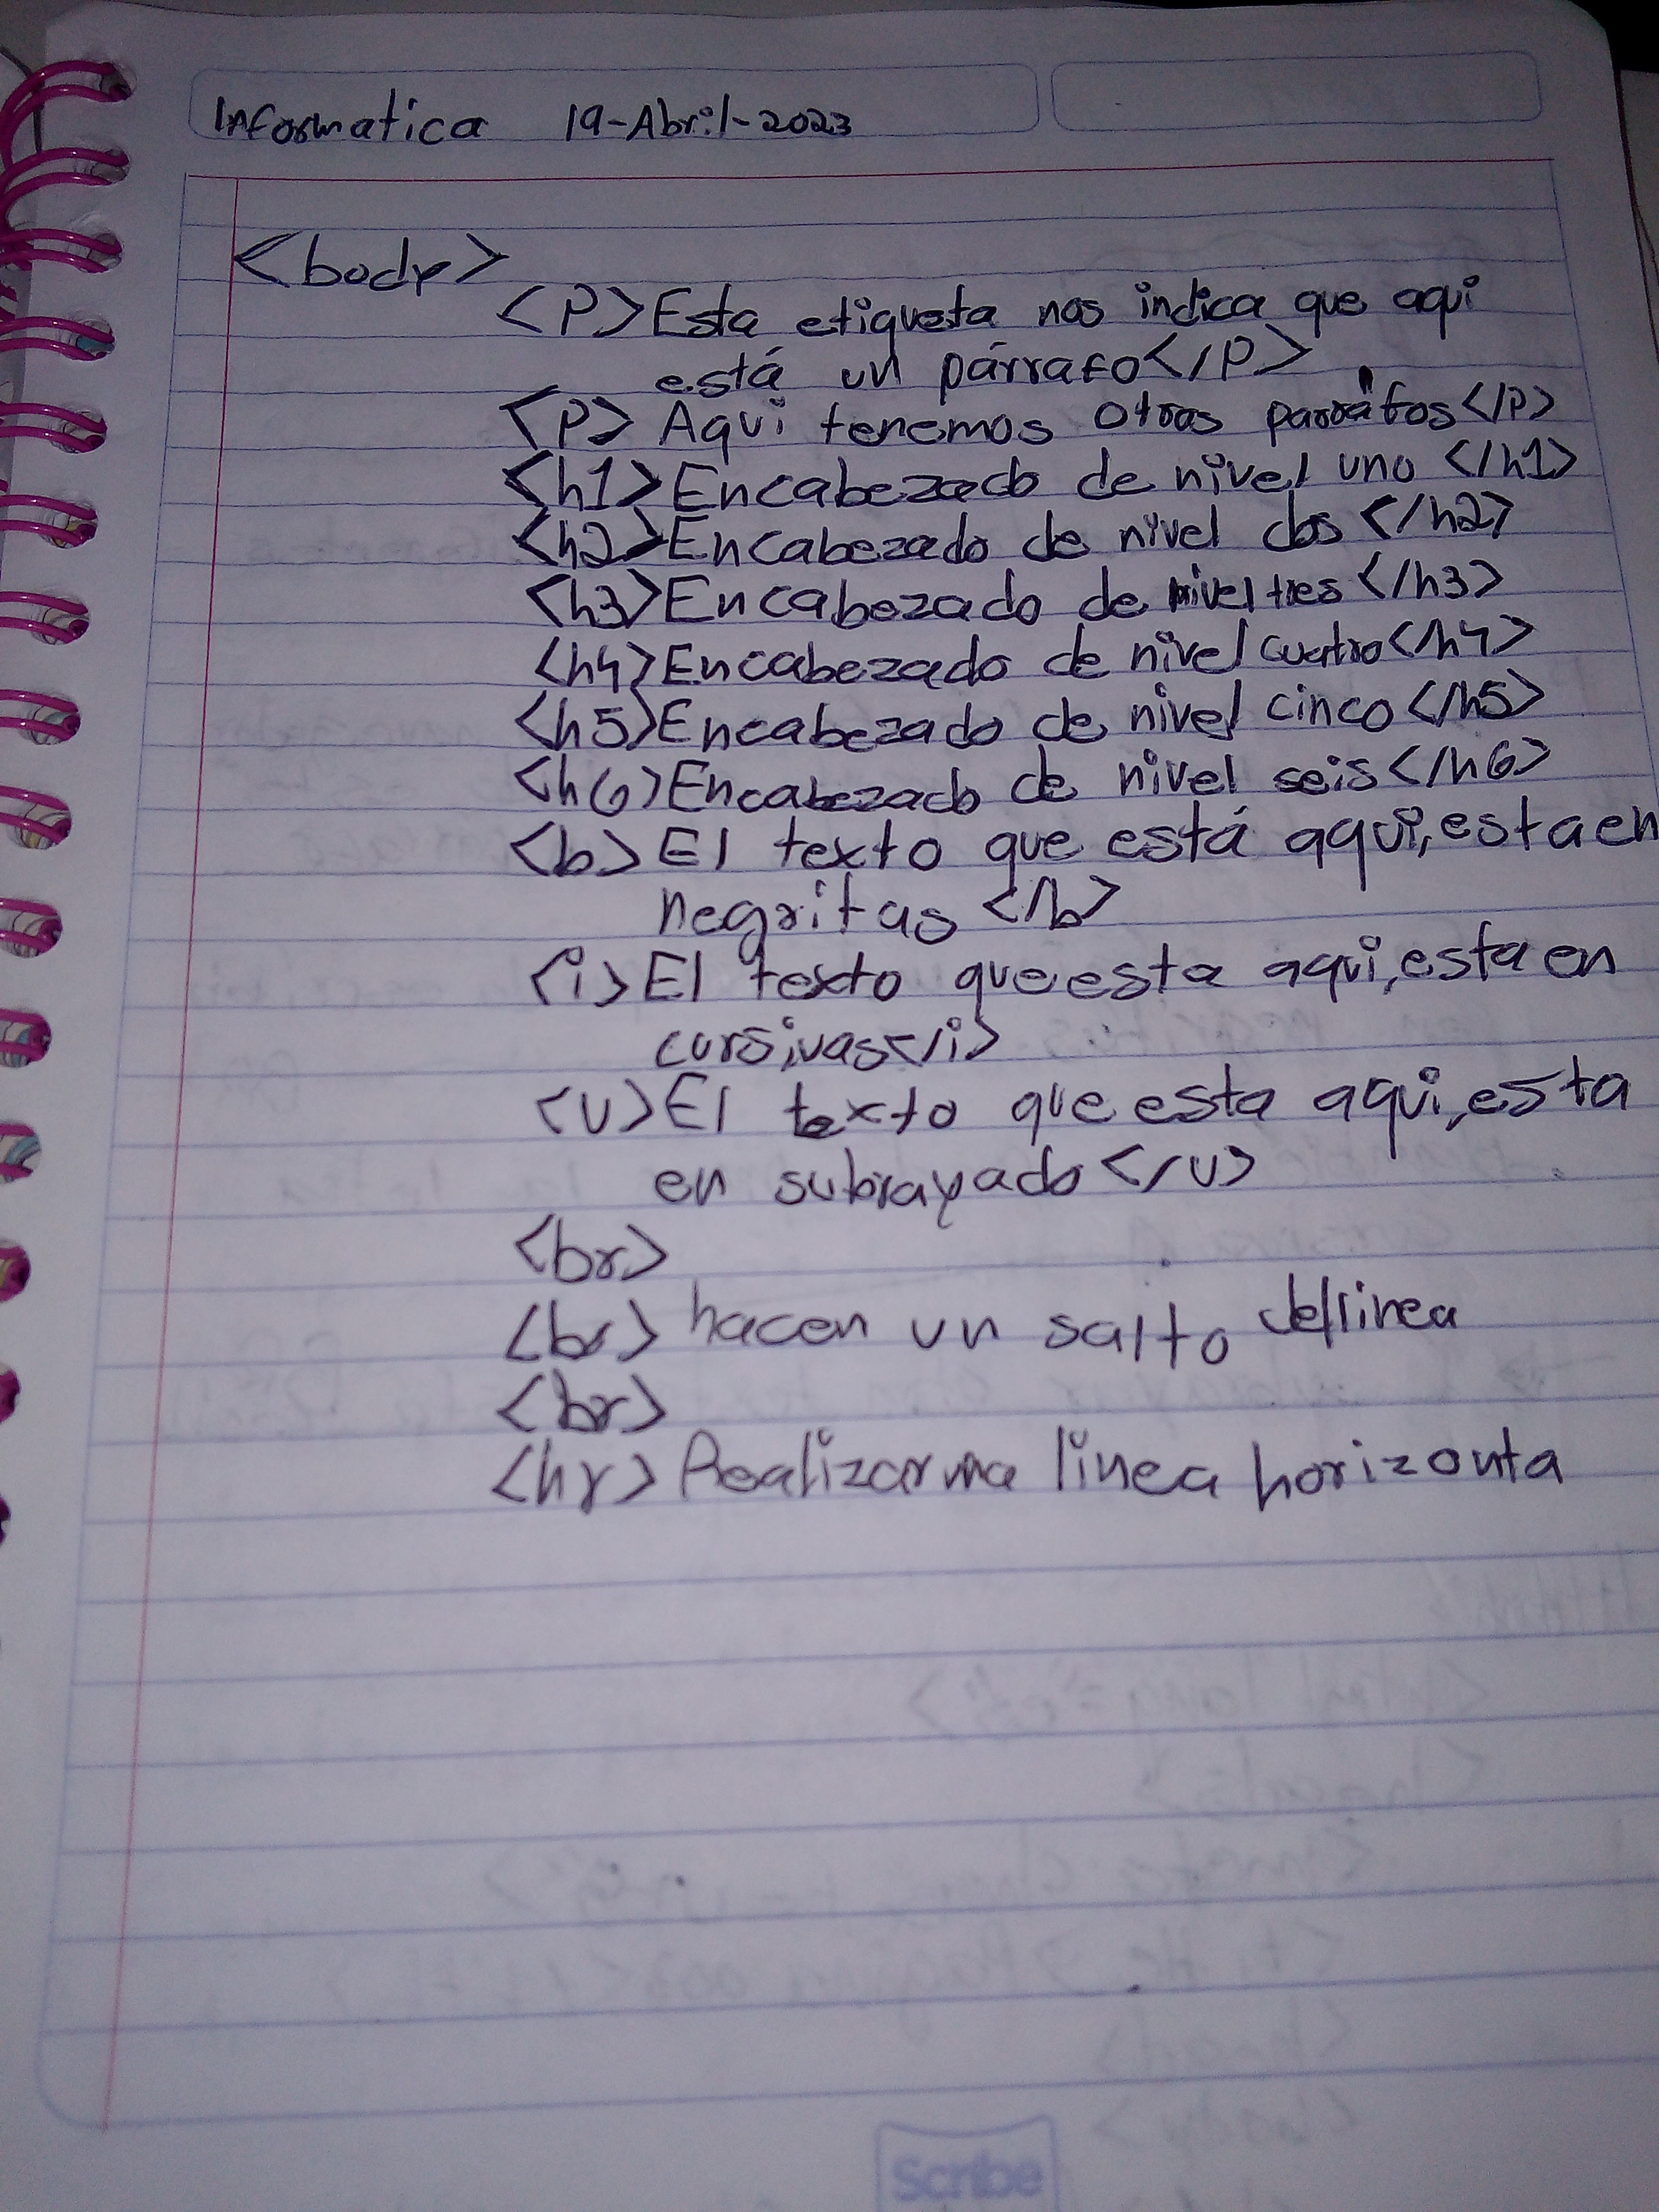 Informatica 19-Abril-2023
<body>
<P>Esta etiqueta nos indica que aqui
está un párrafo</P>
<p> Aqui tenemos otros parráfos</p>
<h1>Encabezado de nivel uno </h1>
<h2>Encabezado de nivel dos </h2>
<h3>Encabezado de nivel tres </h3>
<h4>Encabezado de nivel cuatro</h4>
<h5>Encabezado de nivel cinco </h5>
<h6>Encabezado de nivel seis </h6>
<b> El texto que está aqui, esta en
negritas </b>
<i> El texto que esta aqui, esta en
cursivas</i>
<u>El texto que esta aqui, esta
en subrayado </u>
<br>
<br> hacen un salto del linea
<br>
<hr> Realizar una linea horizonta
Scribe